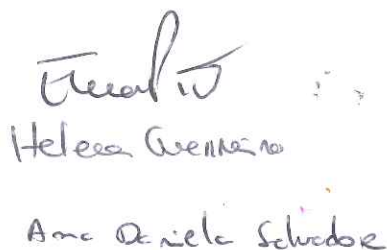 Helena Guerreiro
Ana Daniela Salvador